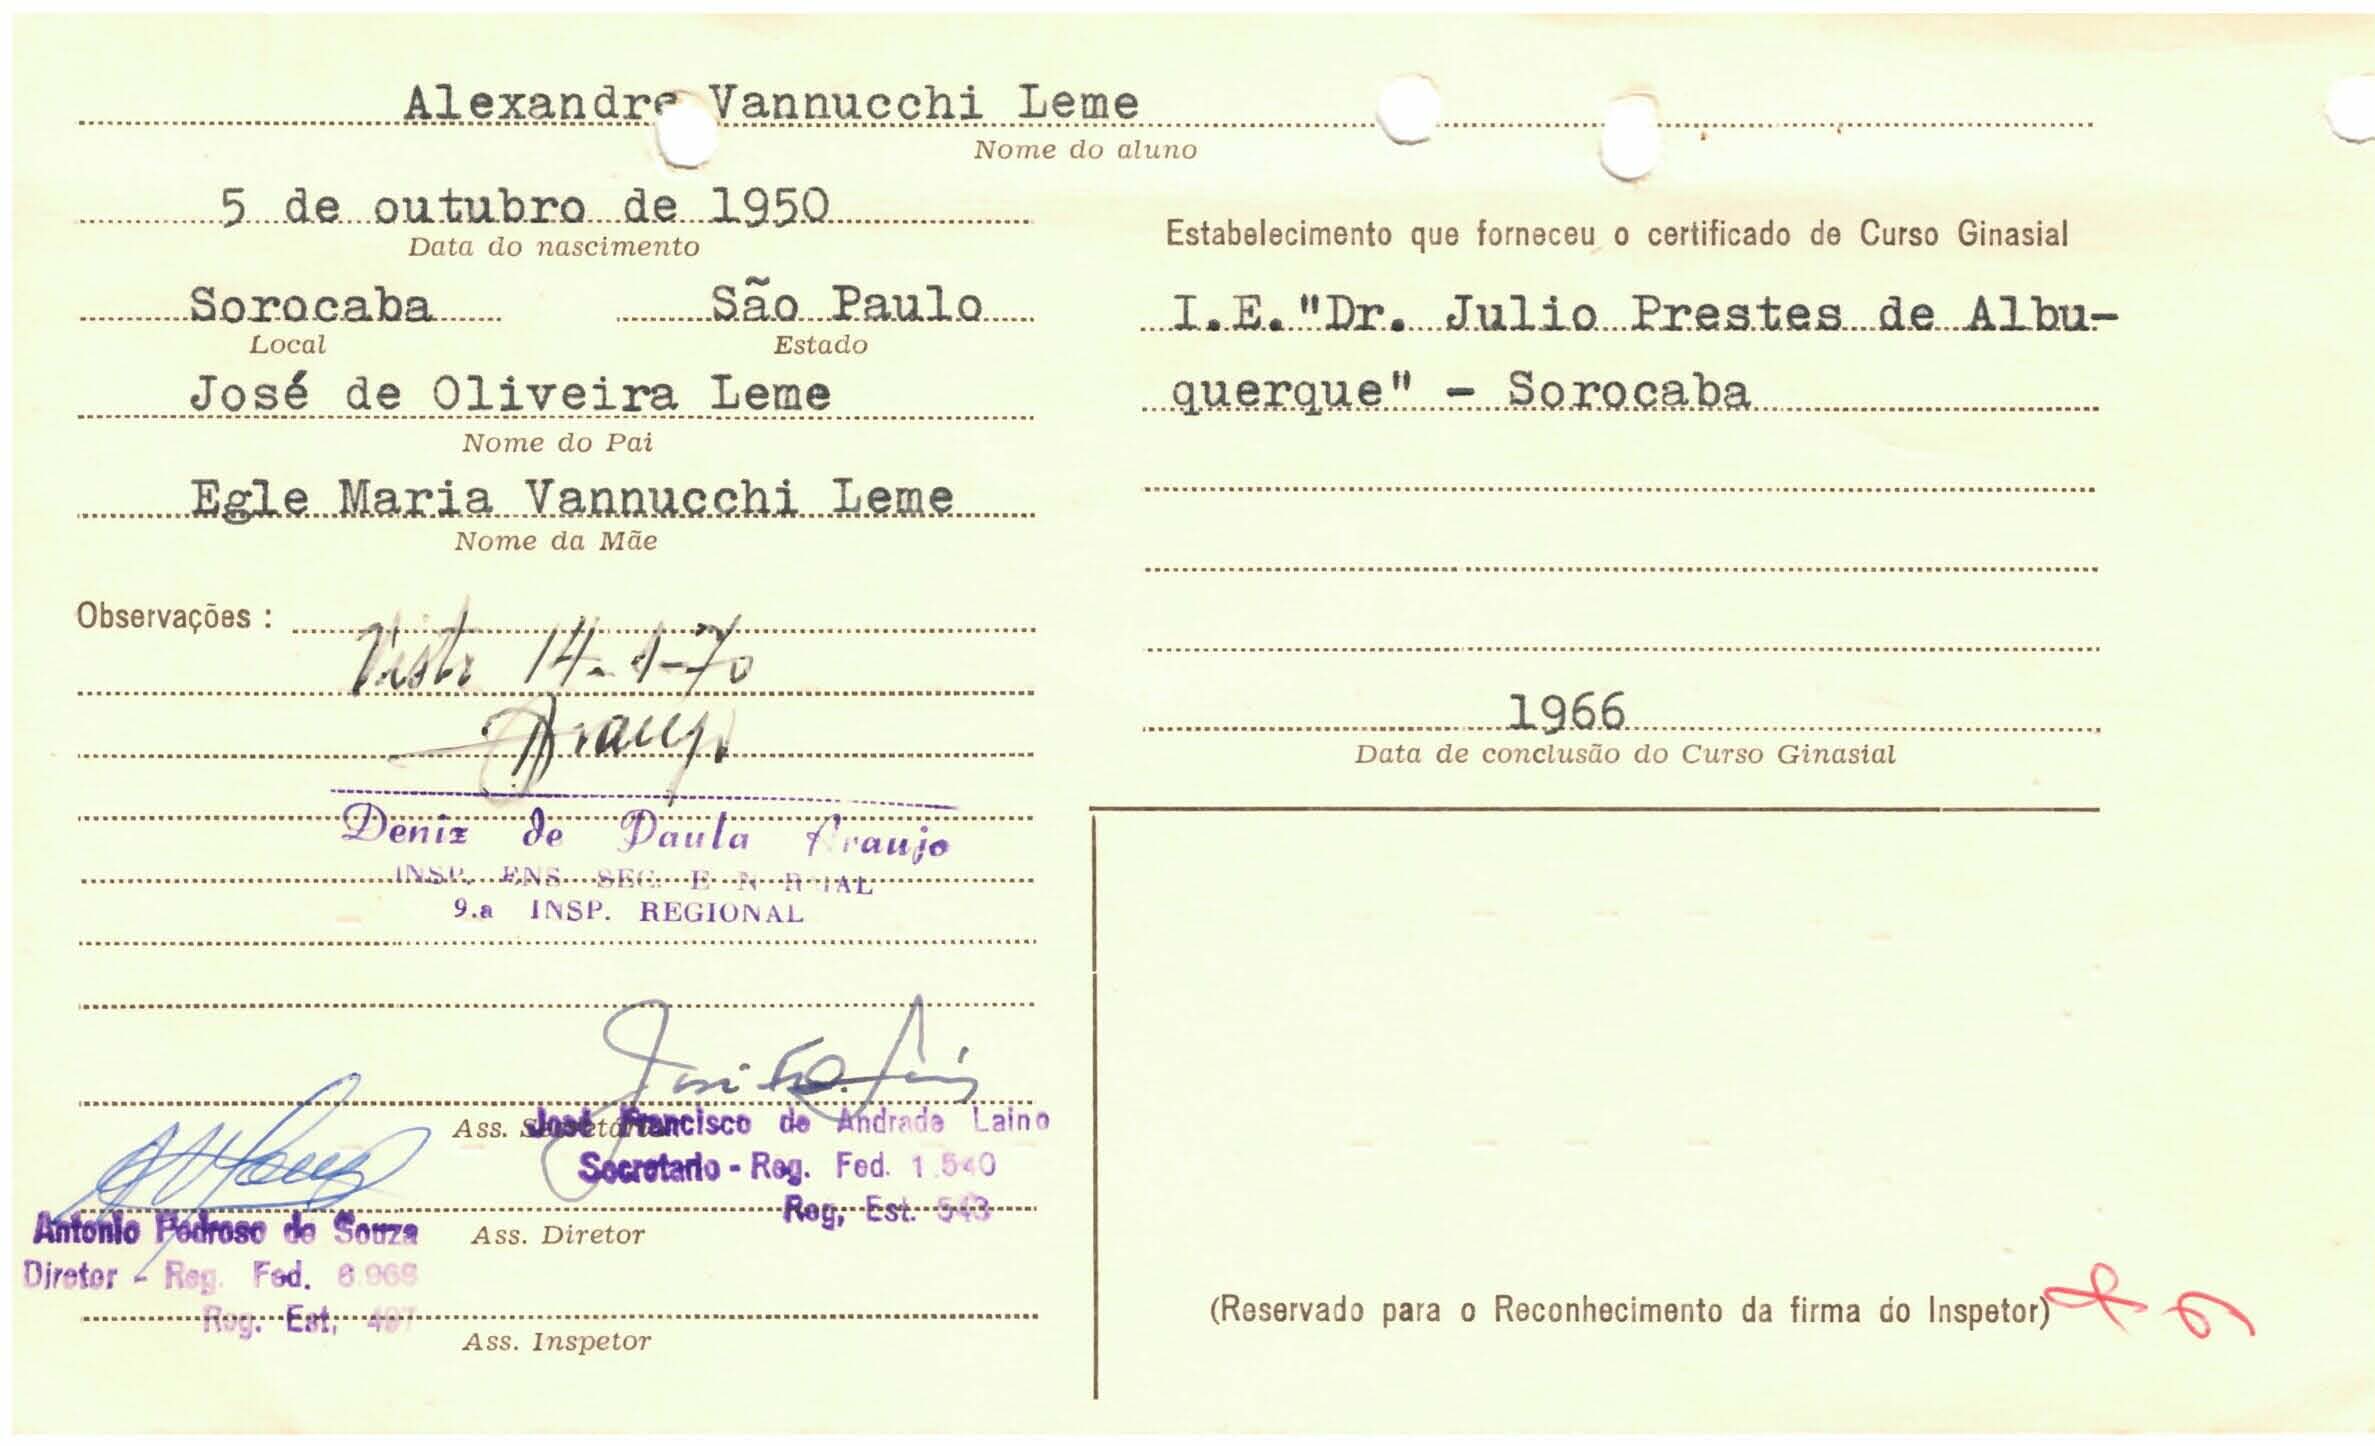 Alexandre Vannucchi Leme
Nome do aluno
5 de outubro de 1950
Data do nascimento
Sorocaba São Paulo
Local Estado
José de Oliveira Leme
Nome do Pai
Egle Maria Vannucchi Leme
Nome da Mãe
Observações :
Visto 14-1-70
Araujo
Deniz de Paula Araujo
INSP. ENS SEC. E N RMAL
9.a INSP. REGIONAL
Ass. Secretário
José Francisco de Andrade Laino
Secretario - Reg. Fed. 1.540
Reg, Est. 543
Ass. Diretor
Antonio Pedroso de Souza
Diretor - Reg. Fed. 6.968
Reg. Est,
Ass. Inspetor
Estabelecimento que forneceu o certificado de Curso Ginasial
I.E."Dr. Julio Prestes de Albu-
querque" - Sorocaba
1966
Data de conclusão do Curso Ginasial
(Reservado para o Reconhecimento da firma do Inspetor)